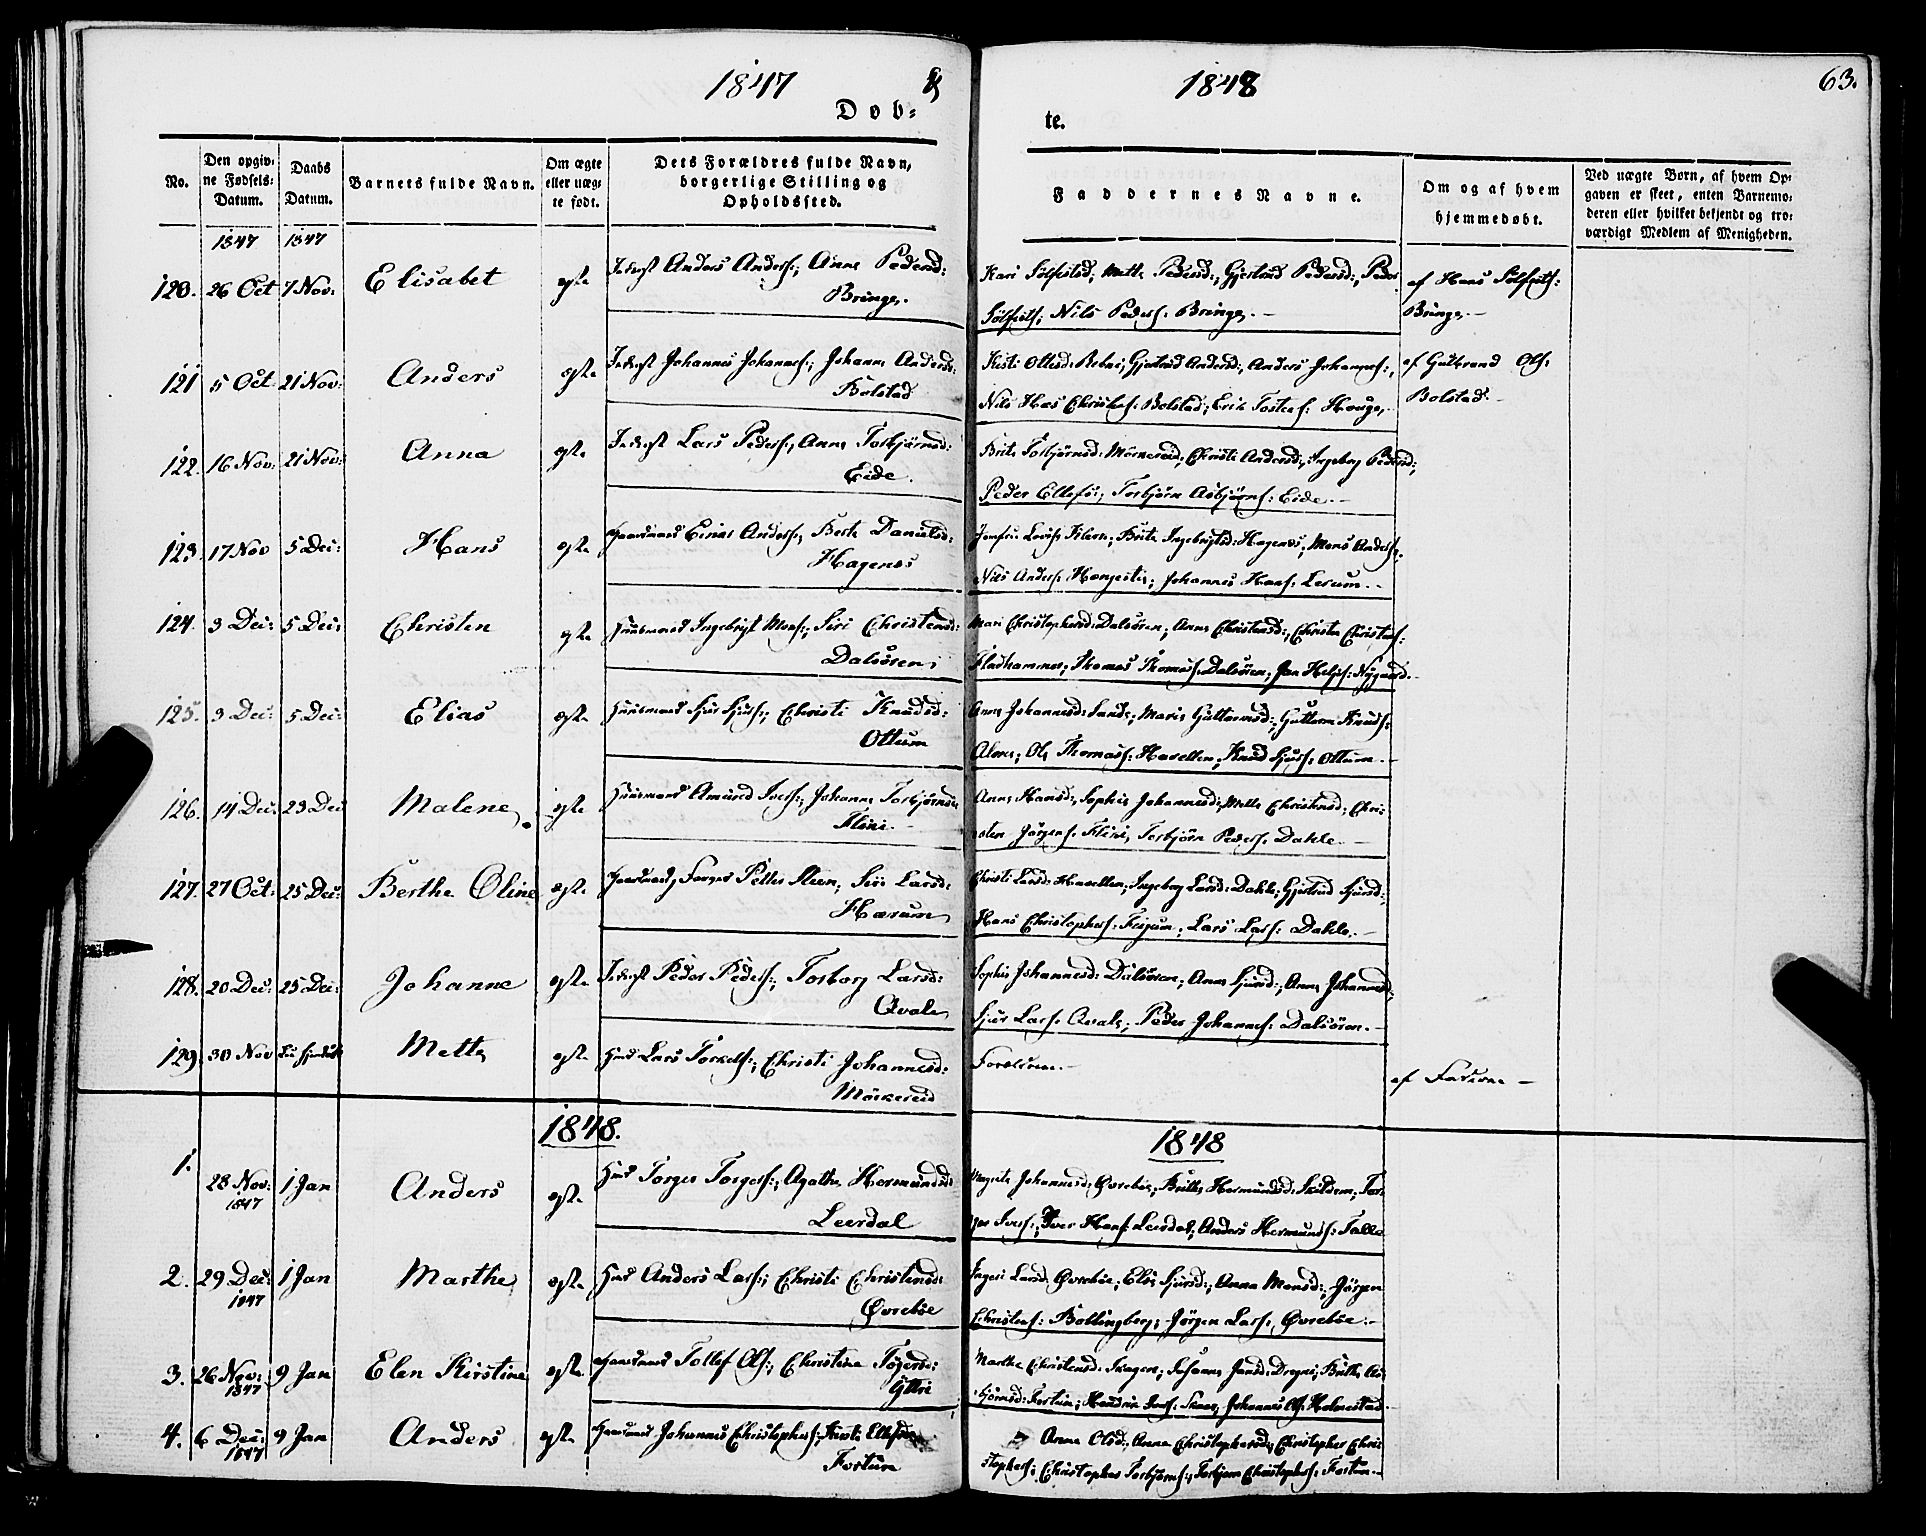 1847 & 1848 63.
Døb- te.
No.
Den opgiv-
ne Fødsels-
Datum.
Daabs
Datum.
Barnets fulde Navn.
Om ægte
eller uæg-
te født.
Dets Forældres fulde Navn,
borgerlige Stilling og
Opholdssted.
Faddernes Navne.
Om og af hvem
hjemmedøbt.
Ved uægte Børn, af hvem Op-
gaven er skeet, enten Barnemo-
deren eller hvilket bekjendt og tro-
værdigt Medlem af Menigheden.
1847 1847
120. 26 Oct 7 Nov: Elisabet ægte Anders Anders:, Anne Pedersd:
Bringe.
Kari Sølfestd:, Mette Pedersd:, Gjertrud Pedersd:, Peder
Sølfests:, Nils Peders: Bringe.
af Hans Sølfests:
Bringe.
121 5 Oct 21 Nov: Anders ægte Johannes Johannes:, Johanne Andersd:
Bolstad
Kristi Ottesd: Gjertrud Andersd:, Anders Johannes:,
Nils Christens: Bolstad, Erik Hauge.
af Gulbrand Ols:
Bolstad.
122. 16 Nov: 21 Nov: Anna ægte Lars Peders:, Anne Torbjørnsd:
Eide.
Brite Torbjørnsd: Christi Andersd:, Ingeborg Pedersd:,
Peder Ellefs:, Torbjørn Asbjørns: Eide.
123. 17 Nov 5 Dec: Hans ægte Gaardmand Einar Anders:, Berte Danielsd:
Hagenes
Brite Ingebrigtsd: Hagenes, Mons Anders:,
Nils Anders: Johannes Hans: Lerum.
124. 3 Dec: 5 Dec: Christen ægte Huusmand Ingebrigt Mons:, Siri Christensd:
Dalsøren,
Mari Christophersd: Dalsøren, Anne Christensd:, Christen Christens:
Fladhammer, Thomas Thomas: Dalsøren, Jan Nygaard.
125. 3 Dec: 5 Dec: Elias ægte Huusmand Sjur Sjurs:, Christi Knudsd:
Ottum
Anne Johannesd: Sande, Maris Guttormsd:, Guttorm Knuds:
Ole Thomas: Havellen, Knud Sjurs: Ottum.
126. 14 Dec: 23 Dec Malene. ægte Huusmand Amund Ivers:, Johanne Torbjørnsd:
Flini.
Anne Hansd:, Sophie Johannesd:, Mette Christensd:, Chri-
sten Jørgens: Flini, Torbjørn Peders: Dahle.
127. 27 Oct: 25 Dec: Berthe Oline ægte Petter Siri Larsd:
Hærum
Christi Larsd: Havellen, Ingeborg Larsd: Dahle, Gjertrud Sjursd:,
Hans Christophers: Fejgum, Lars Lars: Dahle.
128. 20 Dec: 25 Dec: Johanne ægte Peder Peders:, Torborg Larsd:
Qvale
Sophie Johannesd: Dalsøren, Anne Sjursd:, Anne Johannesd:,
Sjur Lars: Qvale, Peder Johannes: Dalsøren.
129. 30 Nov Mette ægte Huus Lars Torkels:, Christi Johannesd:
Mørkereid
Forældrene.
af Faderen
1848. 1848
1. 28 Nov: 1 Jan Anders ægte Huus Torger Torgers:, Agathe Hermundsd:
1847 Leerdal
Johannesd: Øvrebøe, Brithe Hermundsd: Tor-
ger Ivers:, Iver Hans: Leirdal, Anders Hermunds: Talle
2. 29 Dec: 1 Jan Marthe ægte Huus Anders Lars:, Christi Christensd:
1847 Øvrebøe
Ingeri Larsd: Øvrebøe, Eli Sjursd:, Anna Monsd:, Jørgen
Christens: Bollingberg, Jørgen Lars: Øvrebøe.
3. 26 Nov: 9 Jan Elen Kirstine ægte Gaardmand Tollef Ols:, Christine
1847 Yttri
Marthe Christensd: Susanne Jansd: Drægni, Brithe As-
bjørnsd: Fortun, Hendrik Johannes Ols: Holmestad.
4. 6 Dec: 9 Jan Anders ægte Gaardmand Johannes Christophers:, Ellefsd:
1847 Fortun
Anna Olsd:, Anna Christophersd:, Christopher Chri-
stophers:, Christopher Torbjørns:, Torbjørn Christophers: Fortun.